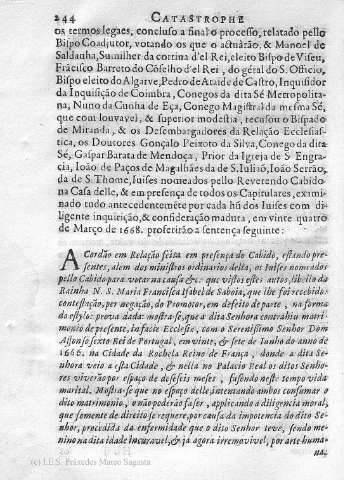 244 CATASTROPHE
os termos legaes, concluso a final o processo, relatado pello
Bispo Coadjutor, votando os que o actuárão, & Manoel de
Saldanha, Sumilher da cortina d'el Rei, eleito Bispo de Viseu,
Frācisco Barreto do Cōselho d'el Rei, do géral do S. Officio,
Bispo eleito do Algarve, Pedro de Ataide de Castro, Inquisidor
da Inquisição de Coimbra, Conegos da dita Sé Metropolita-
na, Nuno da Cunha de Eça, Conego Magistral da mesma Sé,
que com louvavel, & superior modestia, recusou o Bispado
de Miranda, & os Desembargadores da Relação Ecclesias-
tica, os Doutores Gonçalo Peixoto da Silva, Conego da dita
Sé, Gaspar Barata de Mendoça, Prior da Igreja de S. Engra-
cia, Ioão de Paços de Magalhães da de S. Iulião, Ioão Serrão,
da de S. Thome, Iuises nomeados pello Reverendo Cabido
na Casa delle, & em presença de todos os Capitulares, exami-
nado tudo antecedentemēte por cada hū dos Iuises com di-
ligente inquirição, & consideração madura, em vinte quatro
de Março de 1668. proferirão a sentença seguinte:
ACordão em Relação feita em presença do Cabido, estando pre-
sentes, alem dos ministros ordinarios della, os Iuises nomeados
pello Cabido para votar na causa &c. que vistos estes autos, libello da
Rainha N. S. Maria Francisca Isabel de Saboia, que lhe foi recebido:
contestação, per negação, do Promotor, em defeito de parte, na forma
do estylo: prova dada: mostra-se, que a dita Senhora contrahiu matri-
monio de presente, in facie Ecclesie, com o Serenissimo Senhor Dom
Affonso sexto Rei de Portugal, em vinte, & sete de Iunho do anno de
1666. na Cidade da Rochela Reino de França, donde a dita Se-
nhora veio a esta Cidade, & nella no Palacio Real os ditos Senho-
res viverão por espaço de deseseis meses, fasendo neste tempo vida
marital. Mostra-se que no espaço delle, intendando ambos consumar o
dito matrimonio, o não poderão faser, applicando a diligencia moral,
que somente de direito se requere, por causa da impotencia do dito Se-
nhor, procedida da enfermidade que o dito Senhor teve, sendo me-
nino na dita idade incuravel, & ja agora irremovivel, por arte huma-
na.
(c) I.E.S. Práxedes Mateo Sagasta